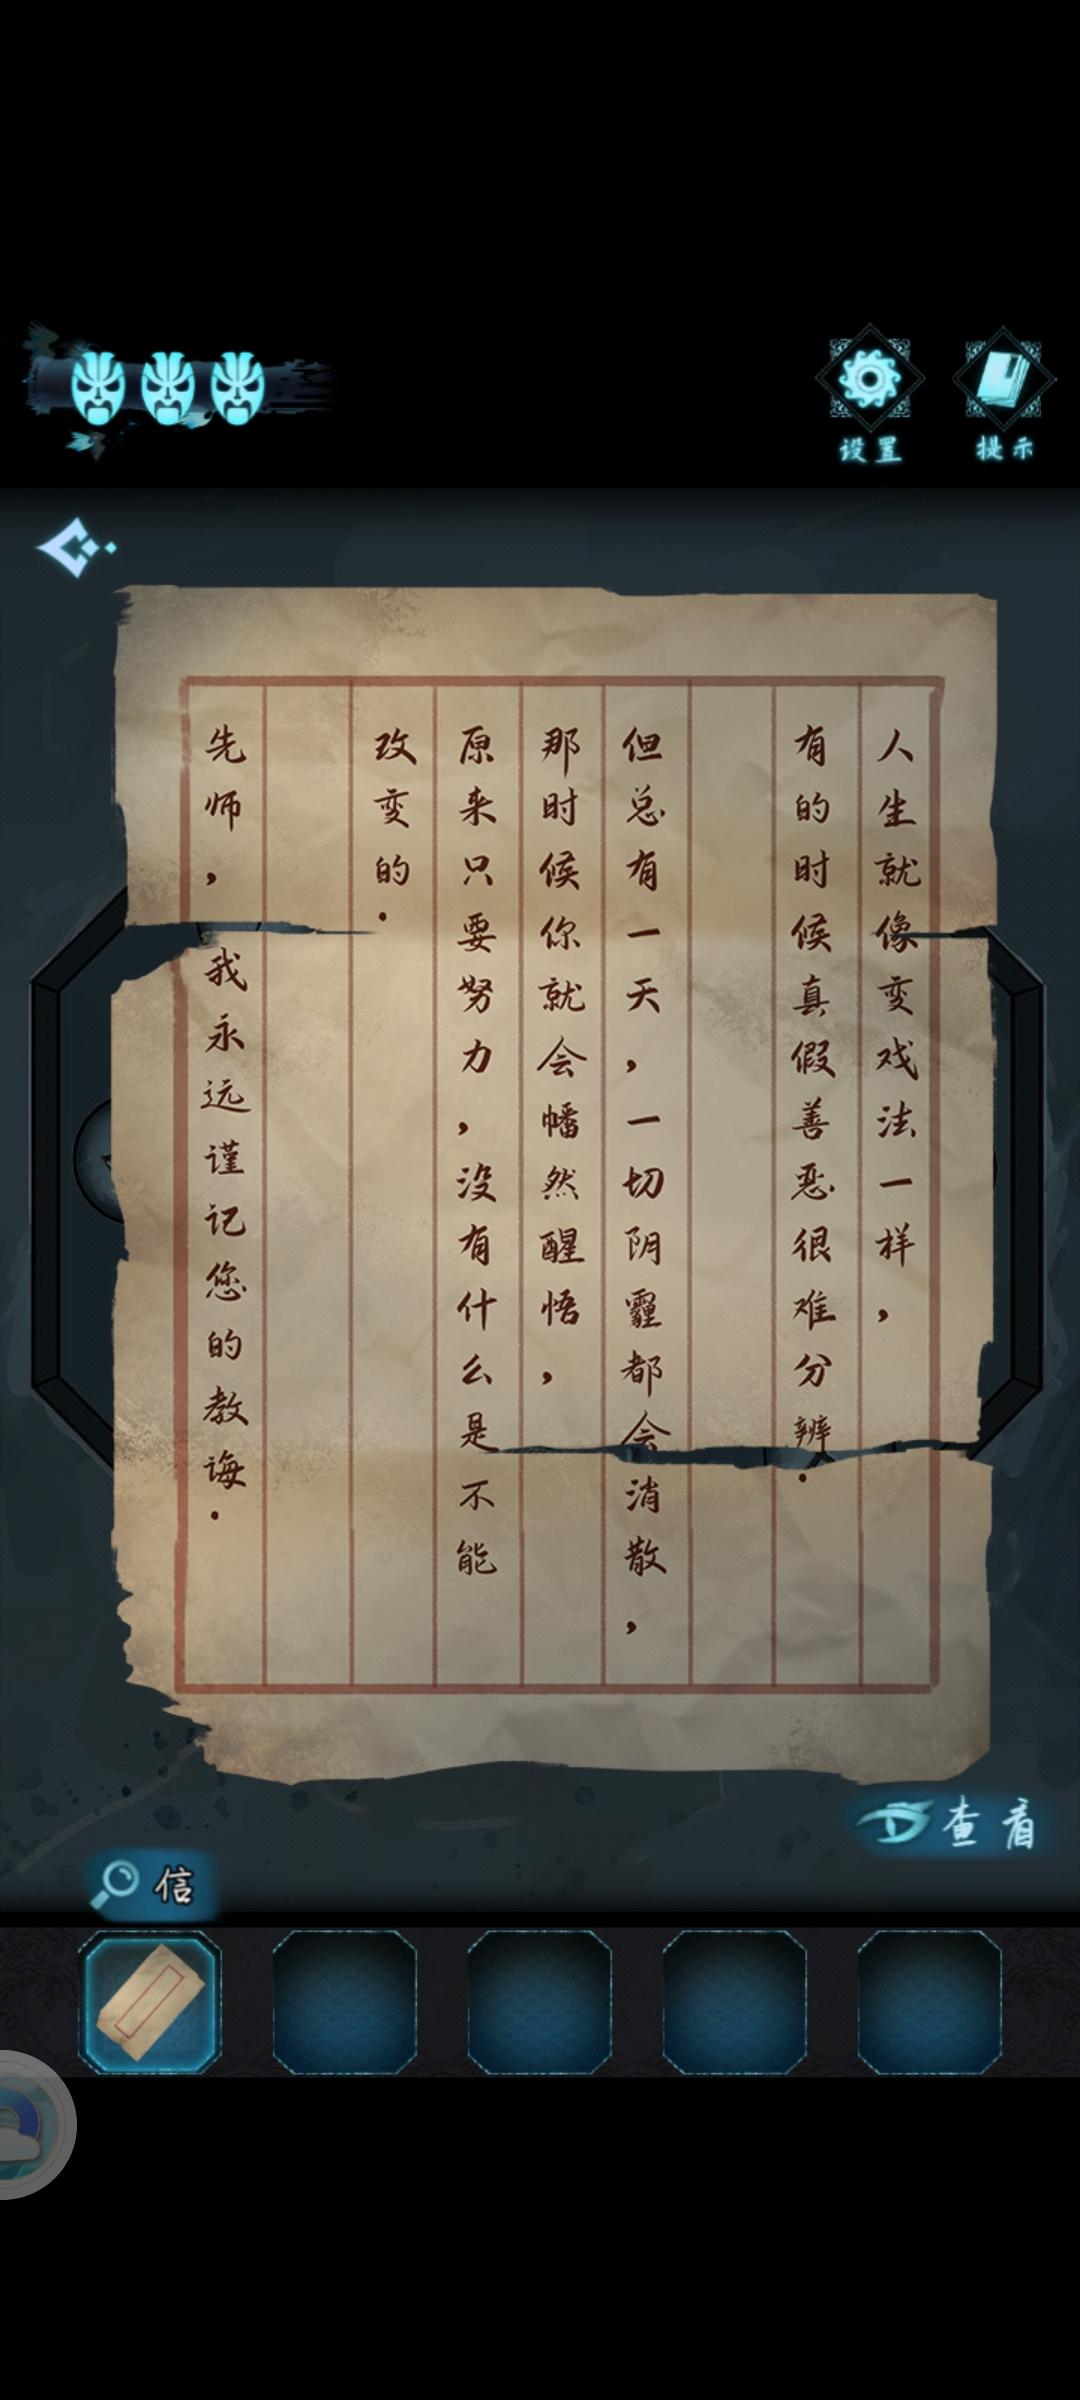 设置
提示
人生就像变戏法一样，
有的时候真假善恶很难分辨.
但总有一天，一切阴霾都会消散，
那时候你就会幡然醒悟，
原来只要努力，没有什么是不能
改变的.
先师，我永远谨记您的教诲.
查看
信